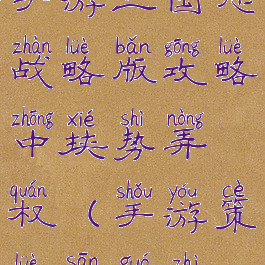 zhàn lüè bǎn gōng lüè
战 略 版 攻 略
zhōng xié shì nòng
中 挟 势 弄
quán shǒu yóu cè
权 （ 手 游 策
lüè sān guó zhì